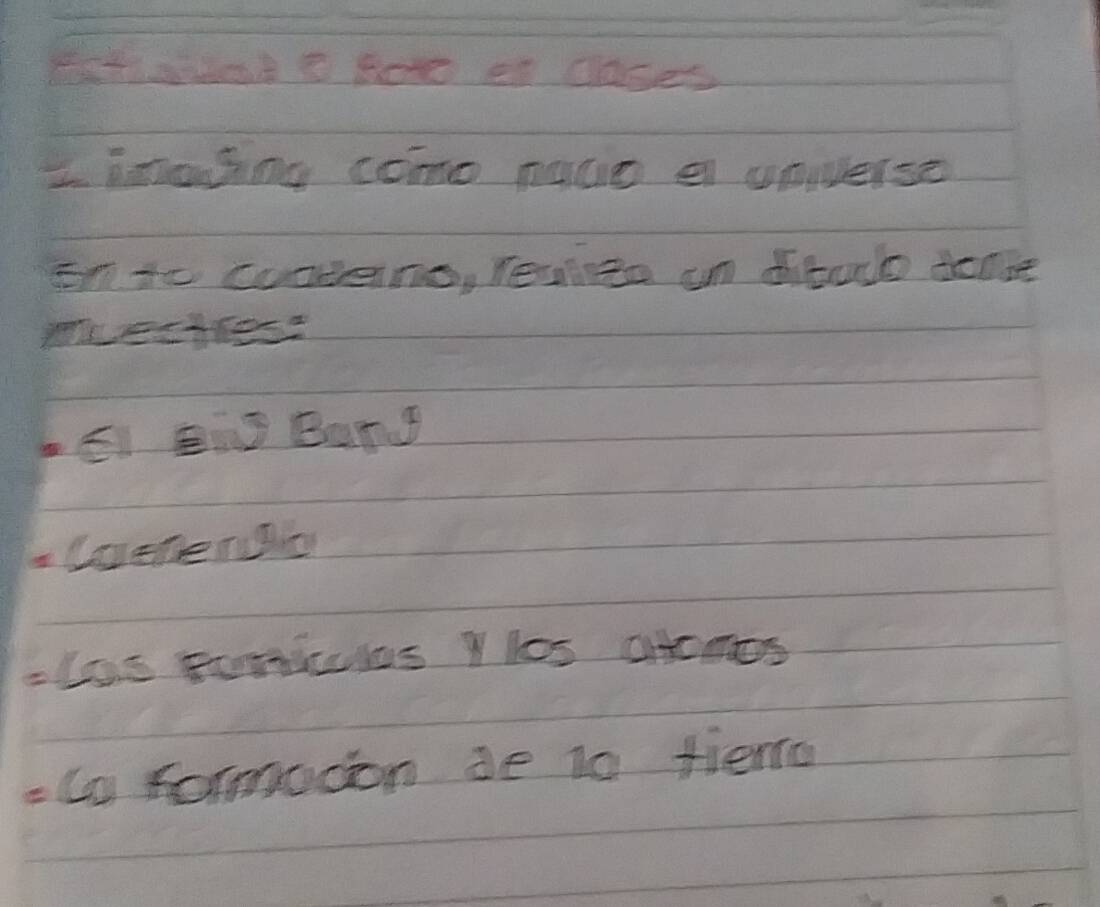 Actividad a Hote en clases
1 imagina cómo nacio el universo
En tu cuaderno, realiza un dibudo donde
muestres:
• El Big Bang
• La energia
• Las particulas y los atomos
• La formación de la tierra